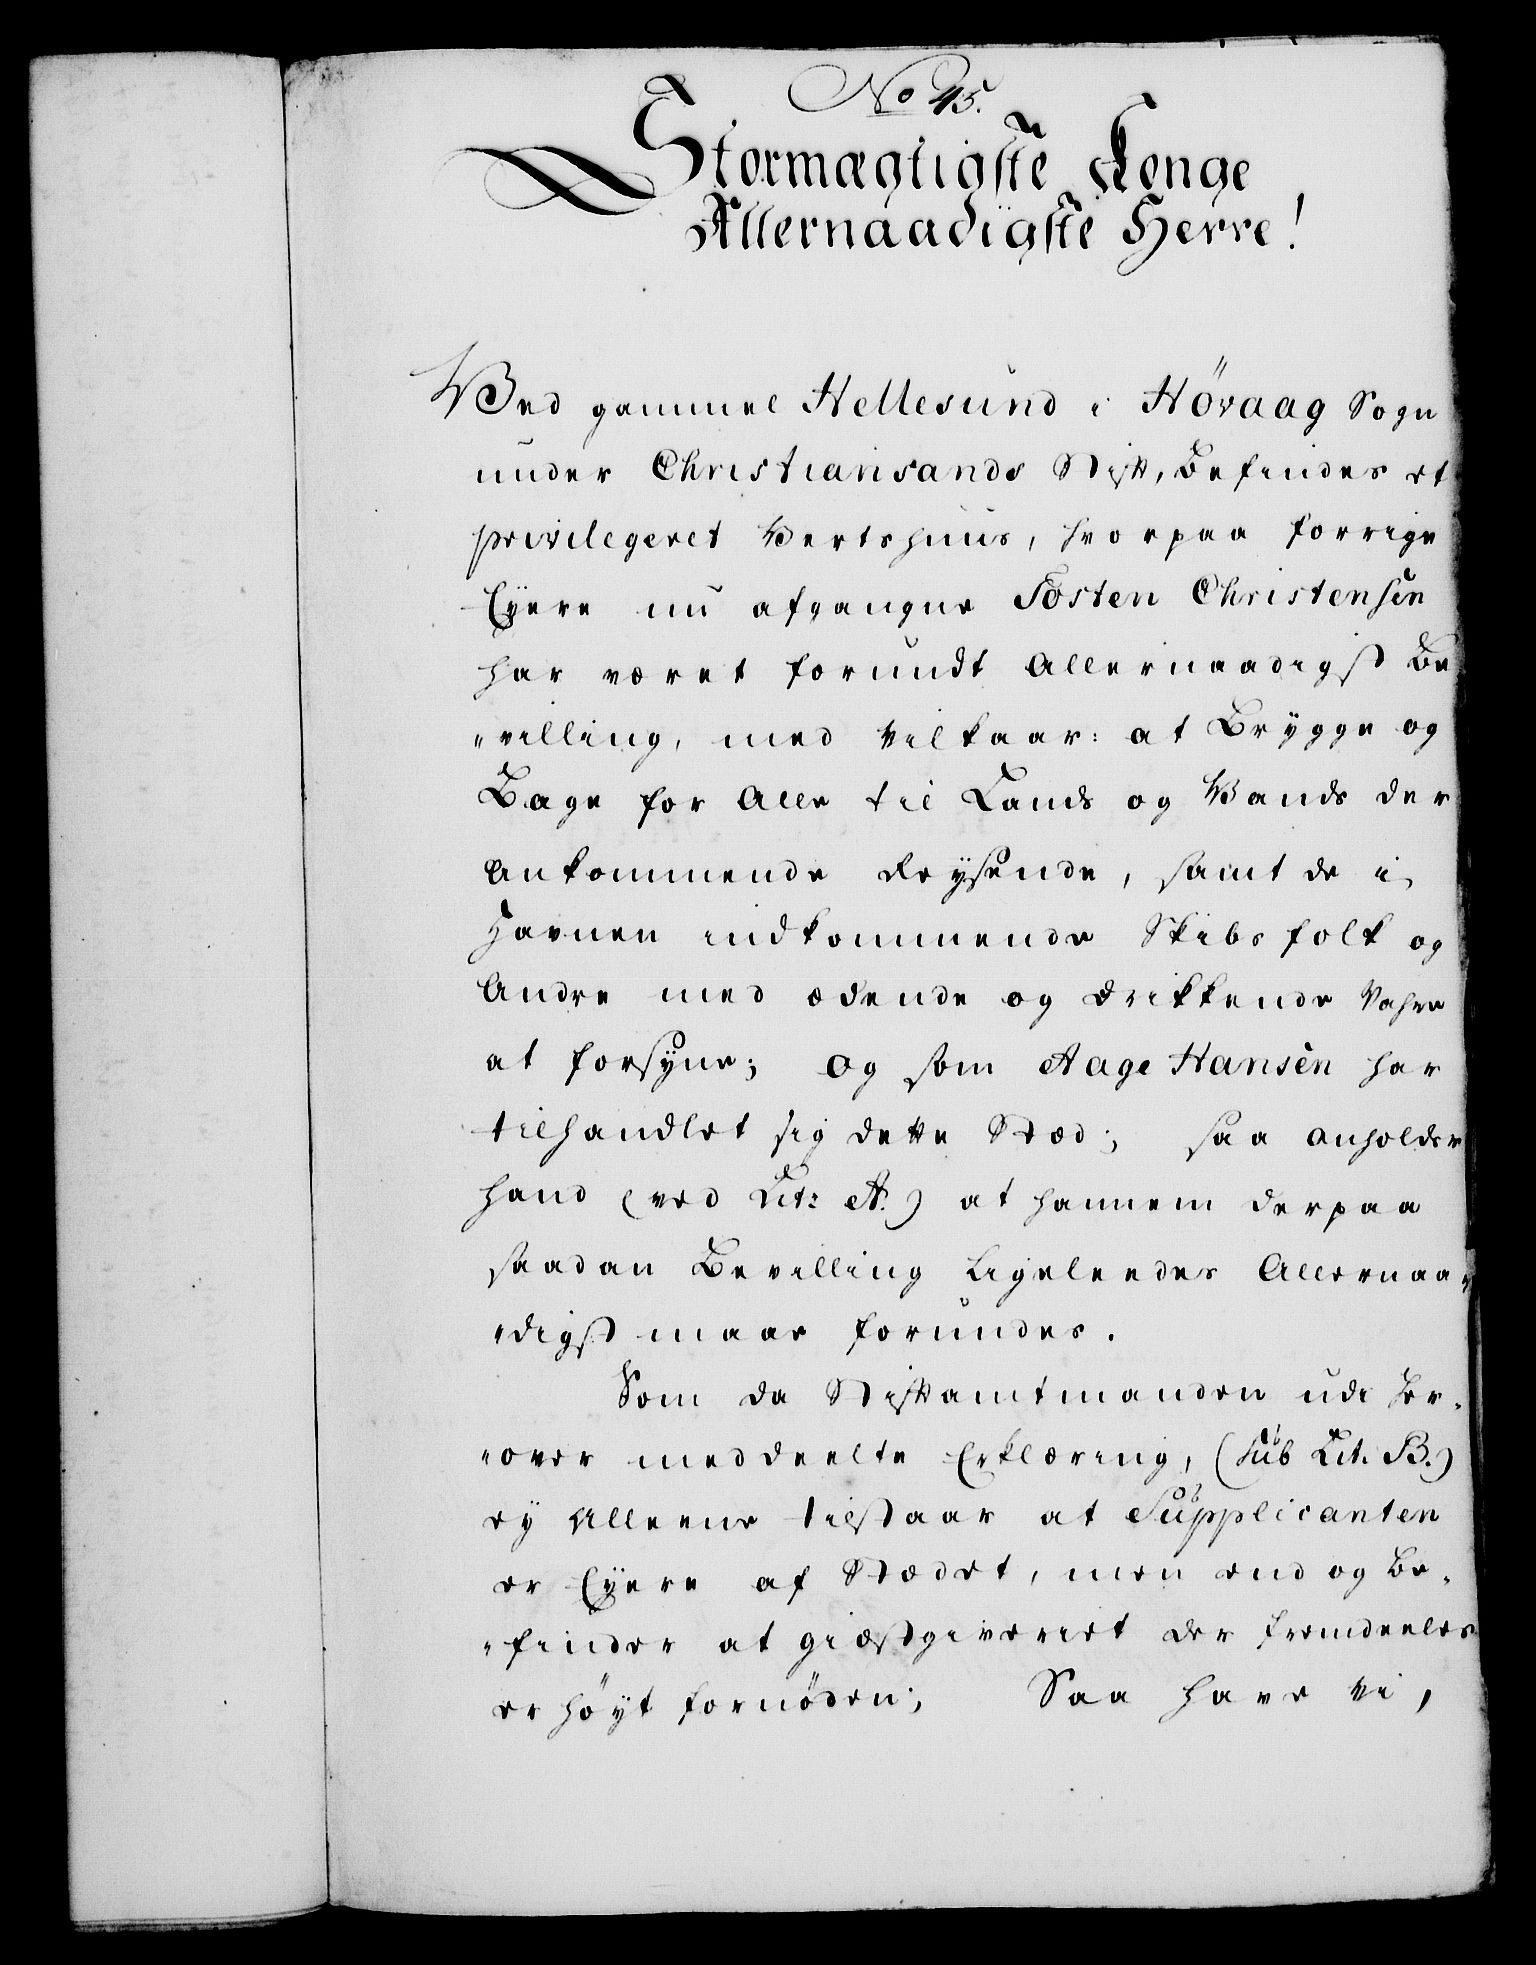 No 45.
Stormægtigste Konge
Allernaadigste Herre!
Ved gammel Hellesund i Høvaag Sogn
under Christiansands Stift, befindes et
privilegeret Vertshuus, hvorpaa forrige
Eyere nu afgangne Tosten Christensen
har været forundt Allernaadigst Be
"villing, med Vilkaar: at Brygge og
Bage for Alle til Lands og Vands der
Ankommende Reysende, samt de i
Havnen indkommende Skibsfolk og
Andre med ædende og drikkende Vahre
at forsyne; og som Aage Hansen har
tilhandlet sig dette Stæd; saa anholder
hand (ved Lit: A.) at hannem derpaa
saadan Bevilling ligeleedes Allernaa-
"digst maae forundes.
Som da Stiftamtmanden udi her-
"over meddeelte Erklæring, (sub Lit. B.)
ey Alleene tilstaar at Supplicanten
er Eyere af Stædet, men end og be-
"finder at giæstgiveriet der fremdeeles
er høyt fornøden; Saa have Vi,